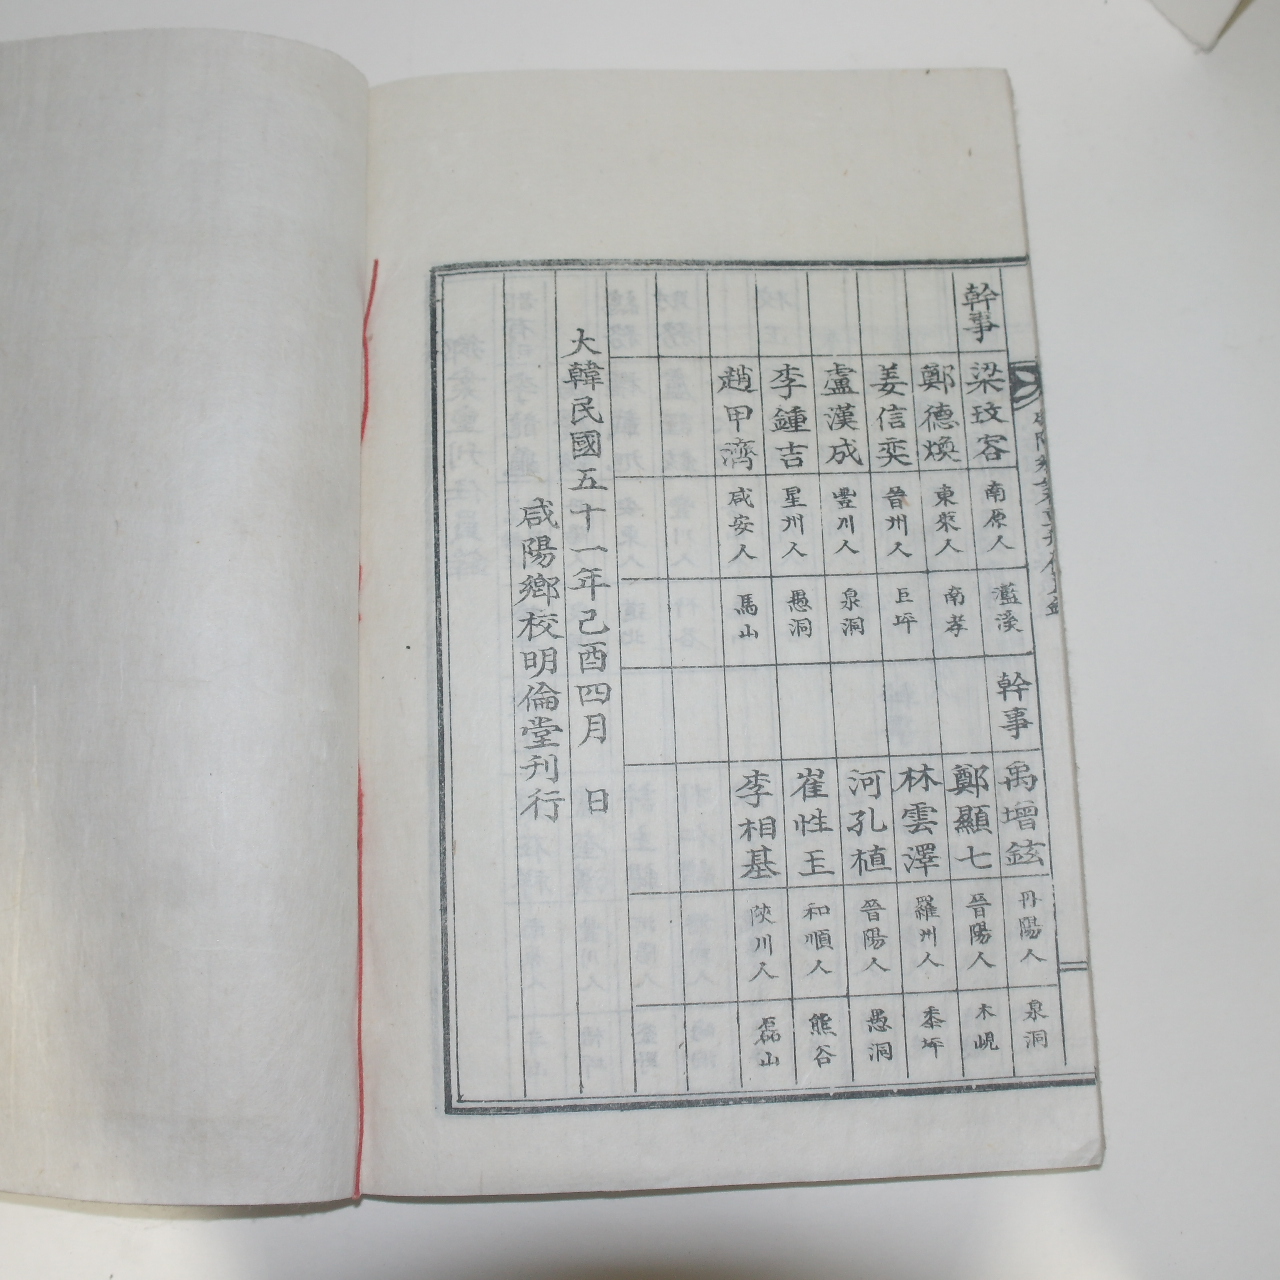 幹事 梁玟容 南原人 灆溪
鄭德煥 東萊人 南孝
姜信奕 晉州人 巨坪
盧漢成 豐川人 泉洞
李鍾吉 星州人 愚洞
趙甲濟 咸安人 馬山
幹事 禹增鉉 丹陽人 泉洞
鄭顯七 晉陽人 木峴
林雲澤 羅州人 黍坪
河孔植 晉陽人 愚洞
崔性玉 和順人 熊谷
李相基 陜川人 磊山
大韓民國五十一年己酉四月 日
咸陽鄉校明倫堂刊行